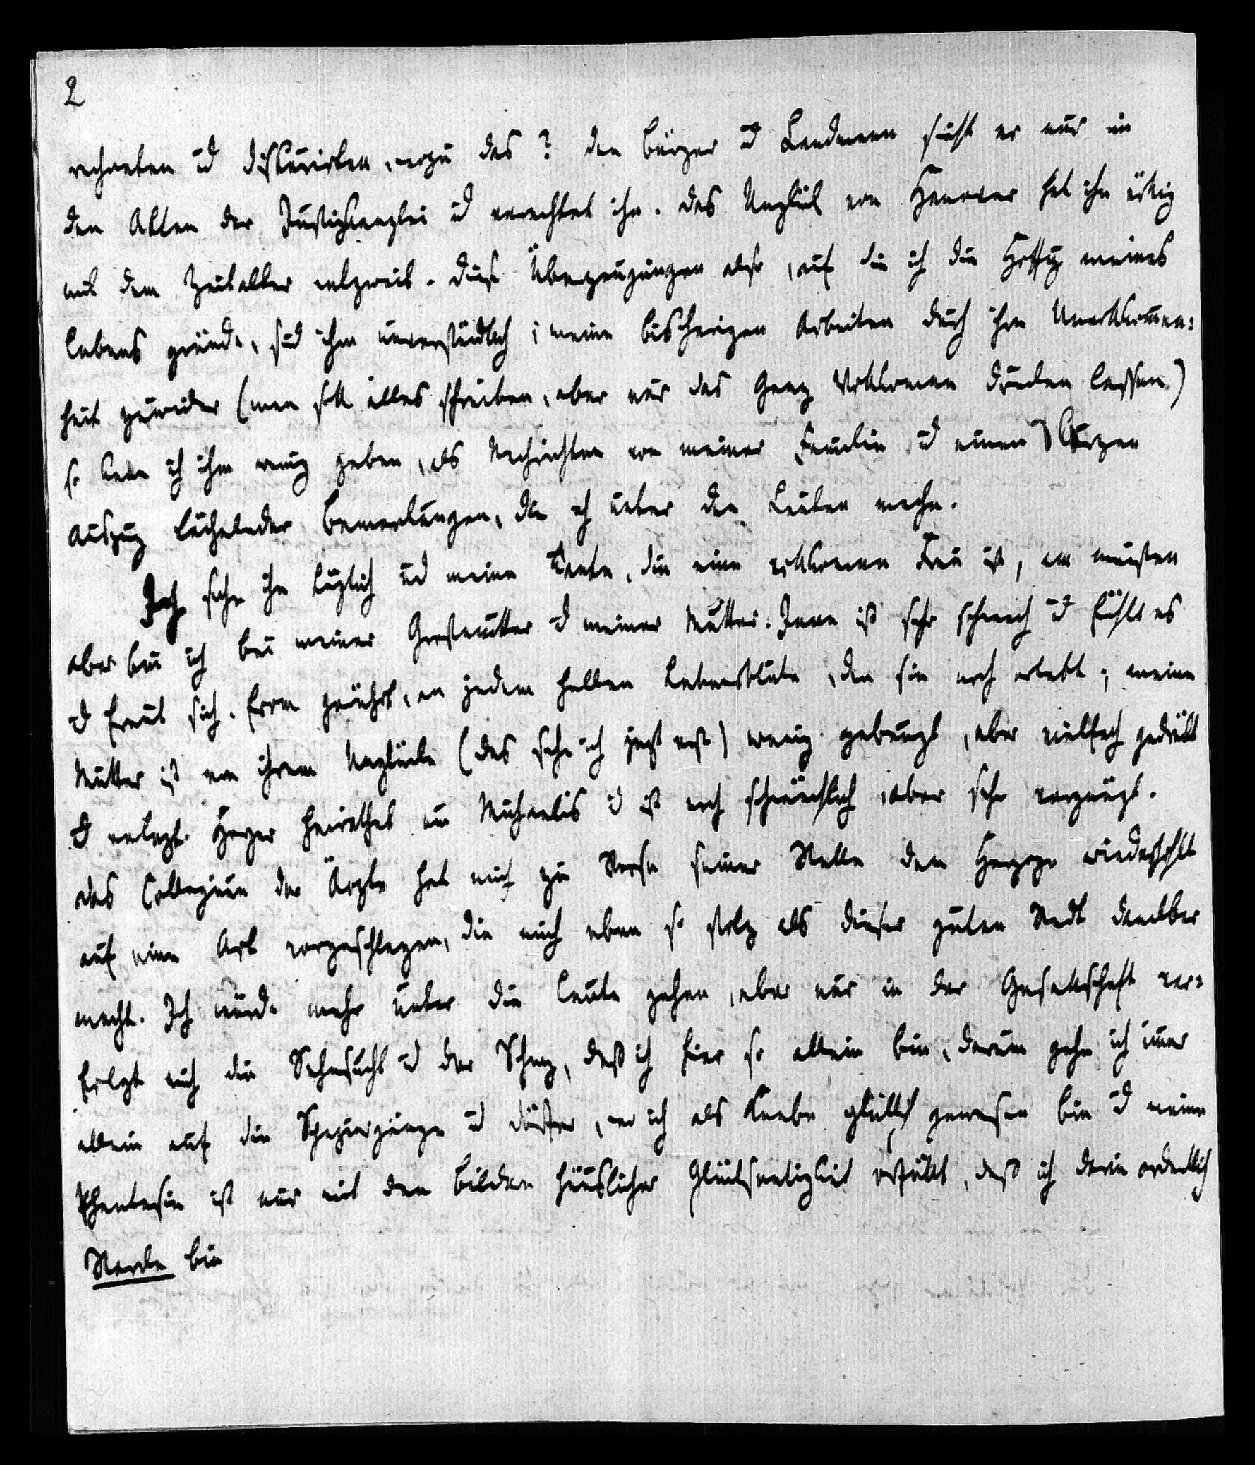 2
rechneten ud diskurirten, wozu das? den Bürger ud Landmann sieht er nur in
den Akten der Justizkanzlei ud verachtet ihn. Das Unglük von Hanover hat ihn
mit dem Zeitalter entzweit. Diese Überzeugungen also, auf die ich die Hoffng meines
Lebens gründe, sind ihm unverständlich; meine bisherigen Arbeiten durch ihre Unvollkommen:
heit zuwider (man soll alles schreiben, aber nur das Ganz Vollkomene drucken lassen,)
so kan ich ihm wenig geben, als Nachrichten von meiner Familie, ud einen Kurzen
Auszug lächelnder Bemerkungen, die ich ueber die Leute mache.
Ich sehe ihn täglich ud meine Tante, die eine vollkomene Frau ist, am meisten
aber bin ich bei meiner Grosmutter ud meiner Mutter. Jene ist sehr schwach ud fühlt es
ud freut sich, an jedem hellen Lebensblike, den sie noch erlebt; meine
Mutter ist von ihrem Unglücke (das sehe ich jezt erst) wenig gebeugt, aber vielfach gedrükt
ud verlezt. heirathet um Michaelis ud ist noch schwächlich aber sehr vergnügt.
Das Collegium der Ärzte hat mich zu seiner Stelle dem Herzoge wiederholt
auf eine Art vorgeschlagen, die mich eben so stolz als dieser guten Stadt dankbar
macht. Ich würde mehr unter die Leute gehen, aber nur in der Gesellschaft ver:
folgt mich die Sehnsucht ud der Schmerz, daß ich hier so allein bin, darum gehe ich imer
allein auf die Spaziergänge ud Dörfer, wo ich als Knabe glüklich gewesen bin ud meine
Phantasie ist nur mit den Bildern häuslicher Glükseeligkeit erfüllt, daß ich darin ordentlich
bin